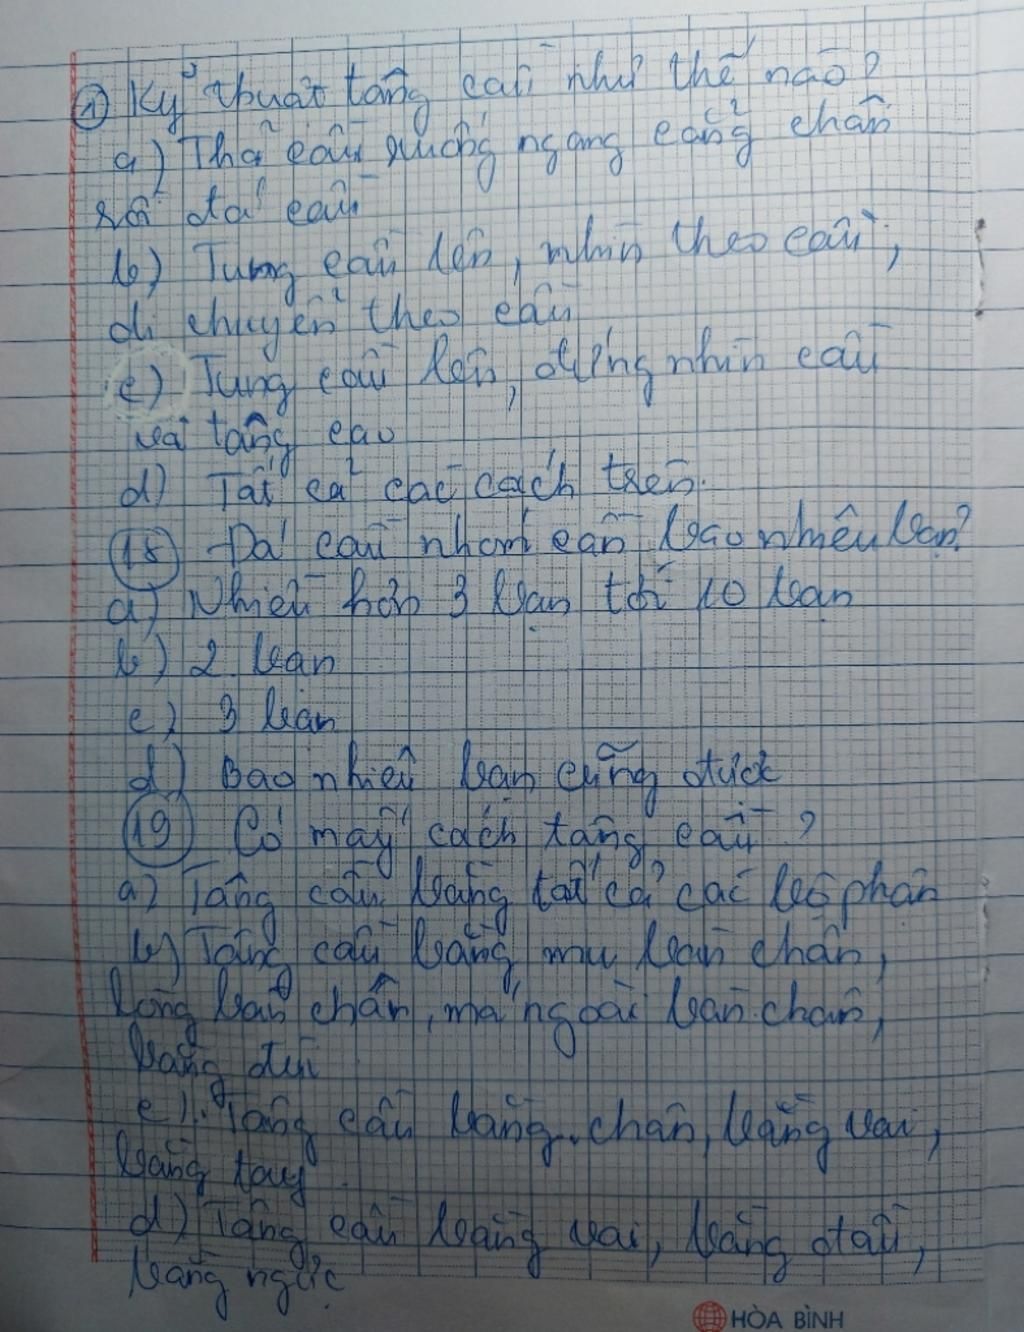 ① Kỹ thuật tâng cầu như thế nào?
a) Thả cầu xuống ngang cẳng chân
rồi đá cầu
b) Tung cầu lên, nhìn theo cầu,
di chuyển theo cầu
c) Tung cầu lên, đứng nhìn cầu
và tâng cao
d) Tất cả các cách trên.
⑱ Đá cầu nhóm cần bao nhiêu bạn?
a) Nhiều hơn 3 bạn tới 10 bạn
b) 2 bạn
c) 3 bạn
d) Bao nhiêu bạn cũng được
⑲ Có mấy cách tâng cầu?
a) Tâng cầu bằng tất cả các bộ phận
b) Tâng cầu bằng mu bàn chân,
lòng bàn chân, má ngoài bàn chân,
bằng đùi
c) Tâng cầu bằng chân, bằng vai,
bằng tay
d) Tâng cầu bằng vai, bằng đầu,
bằng ngực
HÒA BÌNH